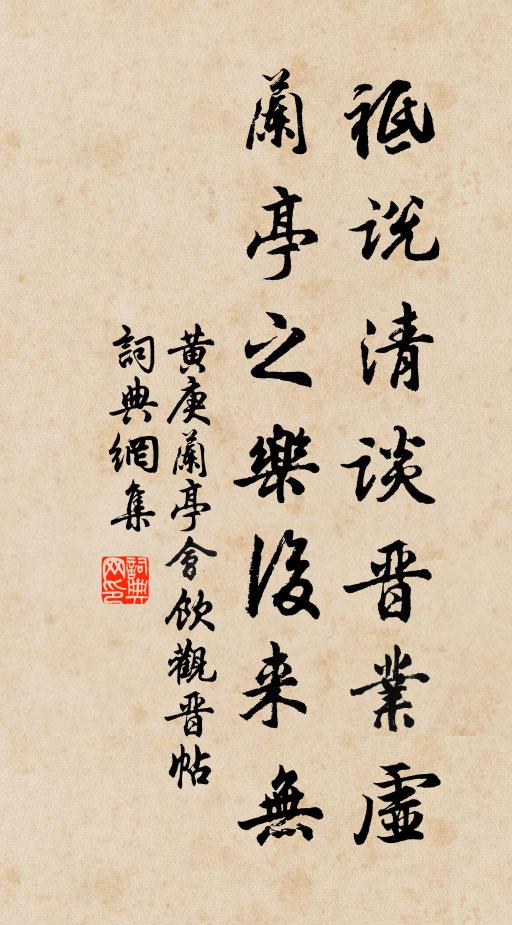 祗说清談晋業虛
蘭亭之樂後来無
黄庚蘭亭會飲觀晋帖
詞典網集
詞典网印